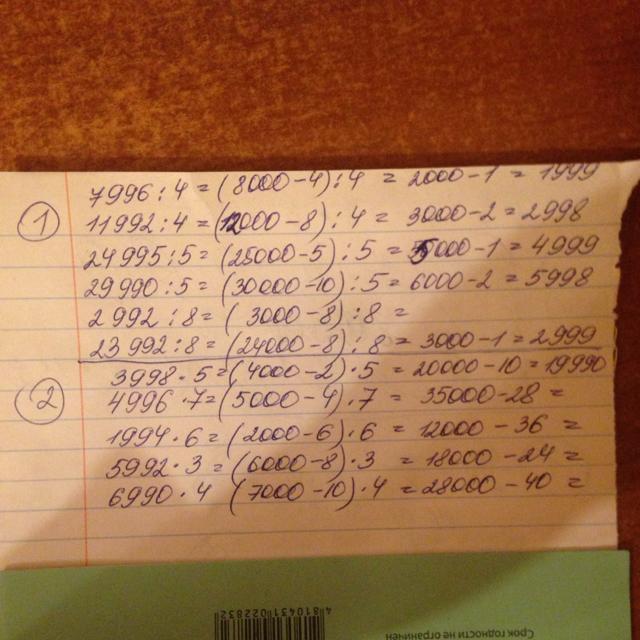 7996 : 4 = (8000 - 4) : 4 = 2000 - 1 = 1999
① 11992 : 4 = (12000 - 8) : 4 = 3000 - 2 = 2998
24995 : 5 = (25000 - 5) : 5 = 5000 - 1 = 4999
29990 : 5 = (30000 - 10) : 5 = 6000 - 2 = 5998
2992 : 8 = (3000 - 8) : 8 =
23992 : 8 = (24000 - 8) : 8 = 3000 - 1 = 2999
3998 · 5 = (4000 - 2) · 5 = 20000 - 10 = 19990
② 4996 · 7 = (5000 - 4) · 7 = 35000 - 28 =
1994 · 6 = (2000 - 6) · 6 = 12000 - 36 =
5992 · 3 = (6000 - 8) · 3 = 18000 - 24 =
6990 · 4 (7000 - 10) · 4 = 28000 - 40 =
4 810431 022832
Срок годности не ограничен